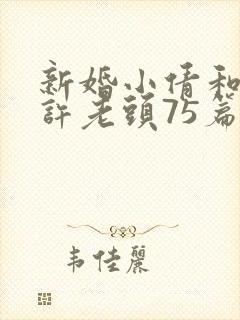 新婚小倩和
許老頭75篇
韦佳麗